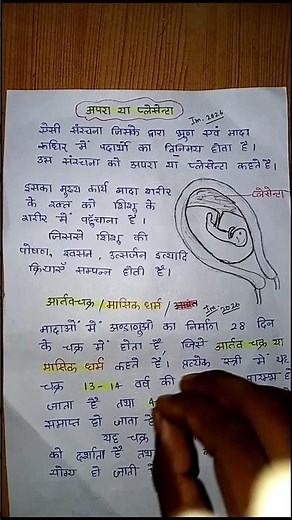 अपरा या प्लेसेन्टा
Im. 2026
ऐसी संरचना जिसके द्वारा भ्रूण एवं मादा
के रूधिर में पदार्थों का विनिमय होता है।
उस संरचना को अपरा या प्लेसेन्टा कहते है।
इसका मुख्य कार्य मादा शरीर
के रक्त को शिशु के
शरीर में पहुँचाना है।
जिससे शिशु की
पोषण, श्वसन, उत्सर्जन इत्यादि
क्रियाएँ सम्पन्न होती है।
प्लेसेन्टा
आर्तवचक्र / मासिक धर्म /
Im. 2020
मादाओं में अण्डाणुओं का निर्माण 28 दिन
के चक्र में होता है, जिसे आर्तव चक्र या
मासिक धर्म कहते है। प्रत्येक स्त्री में यह
चक्र 13-14 वर्ष की
जाता है तथा
समाप्त हो जाता है
यह चक्र
को दर्शाता है तथा
योग्य हो जाती है